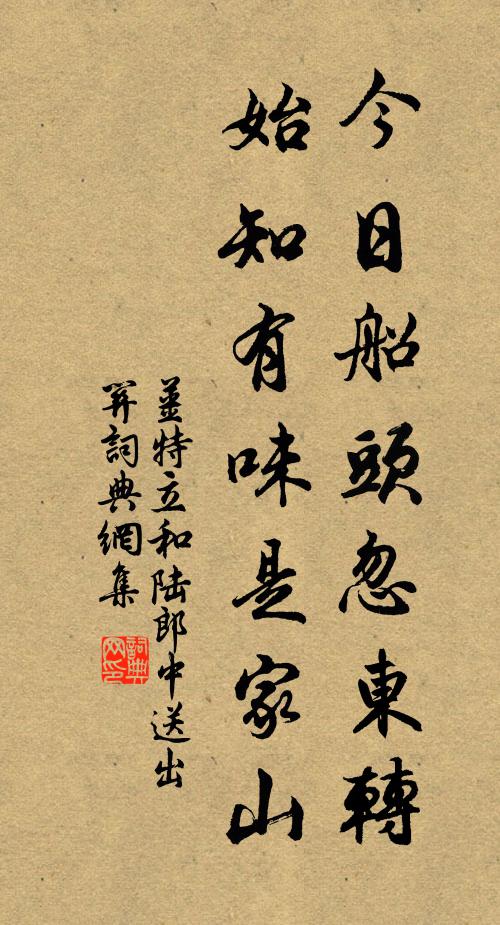 今日船頭忽東轉
始知有味是家山
姜特立和陆郎中送出
笄詞典網集
詞典网印